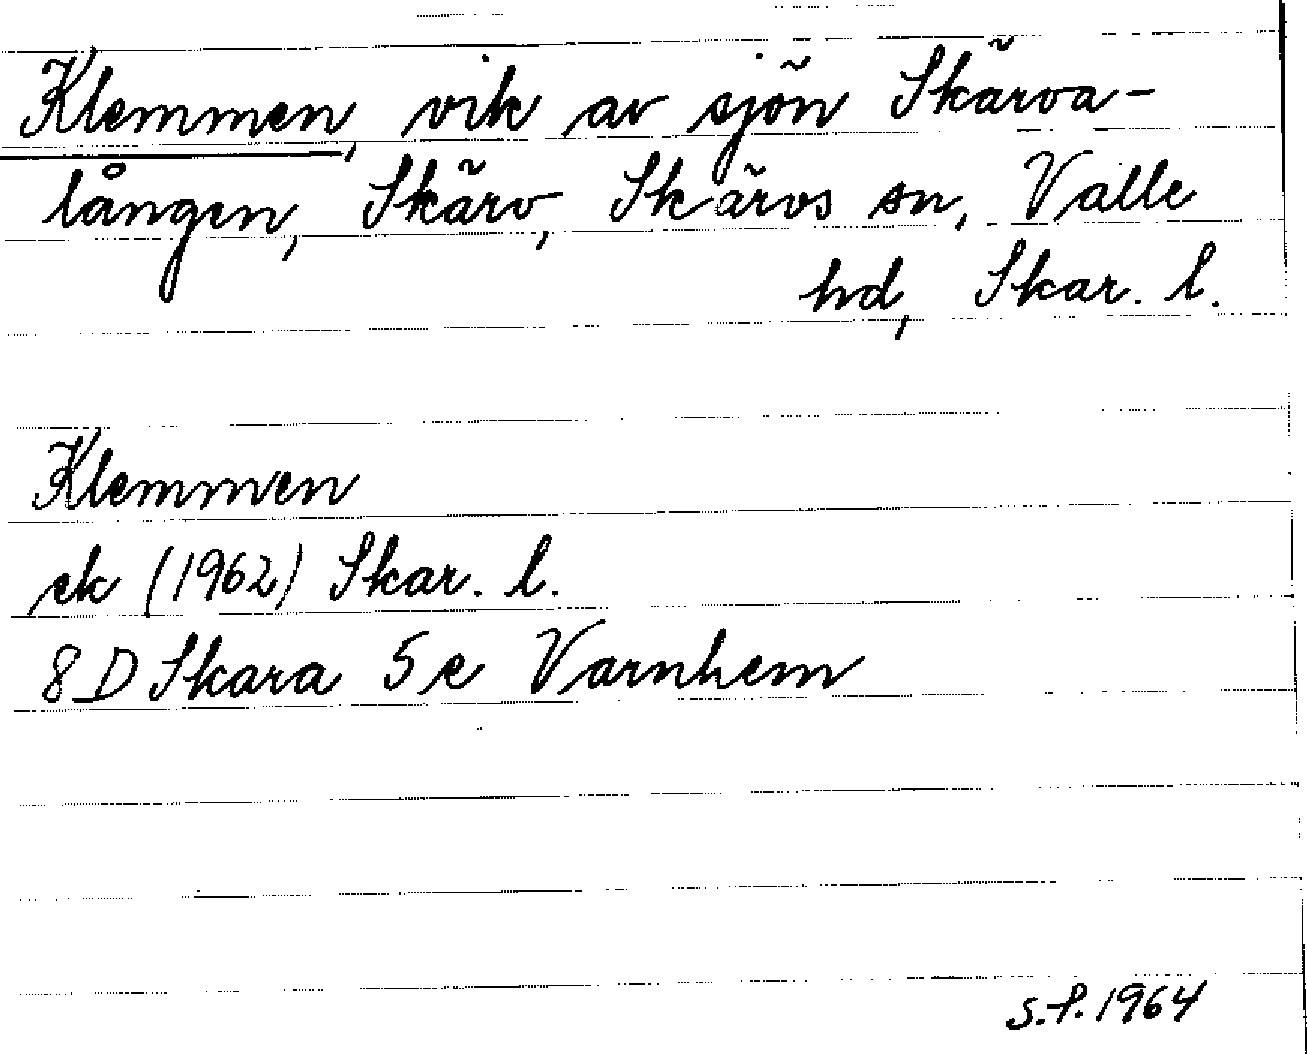 Klemmen, vik av sjön Skärva-
lången, Skärv, Skärvs sn, Valle
hd, Skar. l.
Klemmen
ek (1962) Skar. l.
8 D Skara 5 e Varnhem
S.P. 1964